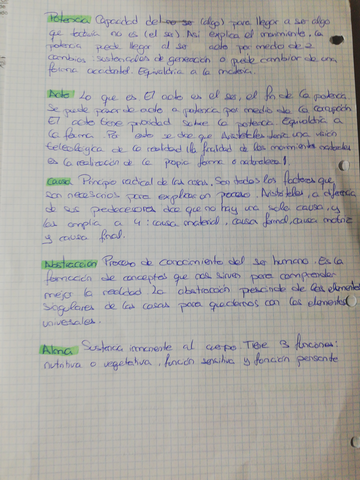 Potencia Capacidad del no ser (algo) para llegar a ser algo
que todavía no es (el ser). Así explica el movimiento, la
potencia puede llegar al ser acto por medio de 2
cambios sustanciales de generación o puede cambiar de una
forma accidental. Equivaldría a la materia.
Acto Lo que es. El acto es el ser, el fin de la potencia
Se puede pasar de acto a potencia por medio de la corrupción
El acto tiene prioridad sobre la potencia. Equivaldría a
la forma. Por esto se dice que Aristóteles tiene una visión
teleológica de la realidad: la finalidad de los movimientos naturales
es la realización de la propia forma o naturaleza.
Causa Principio radical de las cosas. Son todos los factores que
son necesarios para explicar un proceso. Aristóteles, a diferencia
de sus predecesores dice que no hay una sola causa, y
las amplia a 4: causa material, causa formal, causa motriz
y causa final.
Abstracción Proceso de conocimiento del ser humano. Es la
formación de conceptos que nos sirven para comprender
mejor la realidad. La abstracción prescinde de los elementos
singulares de las cosas para quedarnos con los elementos
universales.
Alma Sustancia inmanente al cuerpo. Tiene 3 funciones:
nutritiva o vegetativa, función sensitiva y función pensante